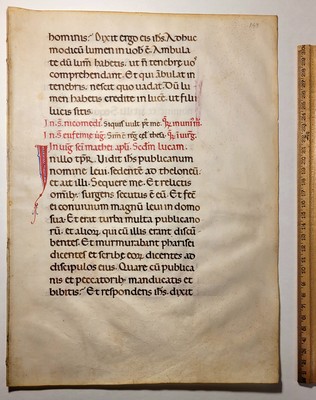 hominis. Dixit ergo eis ih̅s. Adhuc
modicũ lumen in uob̅ ẽ. Ambula
te dũ lum̅ habetis. ut n̅ tenebre uos
comprehendant. Et qui ãbulat in
tenebris. nescit quo uadat. Dũ lu
men habetis credite in lucẽ. ut filii
lucis sitis.
In uig̅ sc̅i mathei apl̅i. Scd̅m lucam.
In illo tp̅r. Uidit ih̅s publicanum
nomine leui. sedentẽ ad theloneũ.
et ait illi. Sequere me. Et relictis
omĩb; surgens secutus ẽ eũ. Et fec̅
ei conuiuium magnũ leui in domo
sua. Et erat turba multa publicano
rũ. et alioꝝ. qui cũ illis erant discũ
bentes. Et murmurabant pharisei
dicentes et scribe eoꝝ. dicentes ad
discipulos eius. Quare cũ publica
nis et peccatorib; manducatis et
bibitis. Et respondens ih̅s. dixit